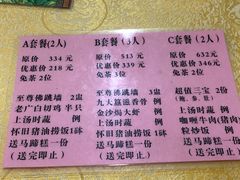 A套餐(2人)
原价 334 元
优惠价 218 元
免茶 2位
至尊佛跳墙 2盅
老广白切鸡 半只
上汤时蔬 例
怀旧猪油捞饭1砵
送马蹄糕一份
(送完即止)
B套餐(3人)
原价 513 元
优惠价339 元
免茶 3位
至尊佛跳墙 3盅
九大簋滋香骨 例
金沙焗大虾 例
上汤时蔬 例
怀旧猪油捞饭1砵
送马蹄糕一份
(送完即止)
C套餐(2人)
原价 632
优惠价 346
免茶 2位
超值三宝 2份
咖喱牛肉(猪肉
粒炒饭 例
送马蹄糕一
(送完即